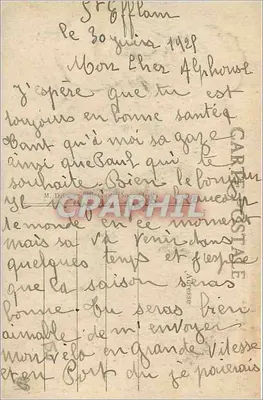 St Efflam
le 30 juin 1925
Mon Cher Alphonse
J'espère que tu est
toujours en bonne santée
tant qu'à moi sa gaze
ainsi que Paul qui te
souhaite Bien le bonjour
Il
le monde en ce moment
mais sa va venir dans
quelques temps et j'espè
que la saison seras
bonne. tu seras bien
aimable de m'envoyer
mon vélo en Grande Vitesse
et en Port du je pourrais
CARTE POSTALE
Adresse
CPAPHIL